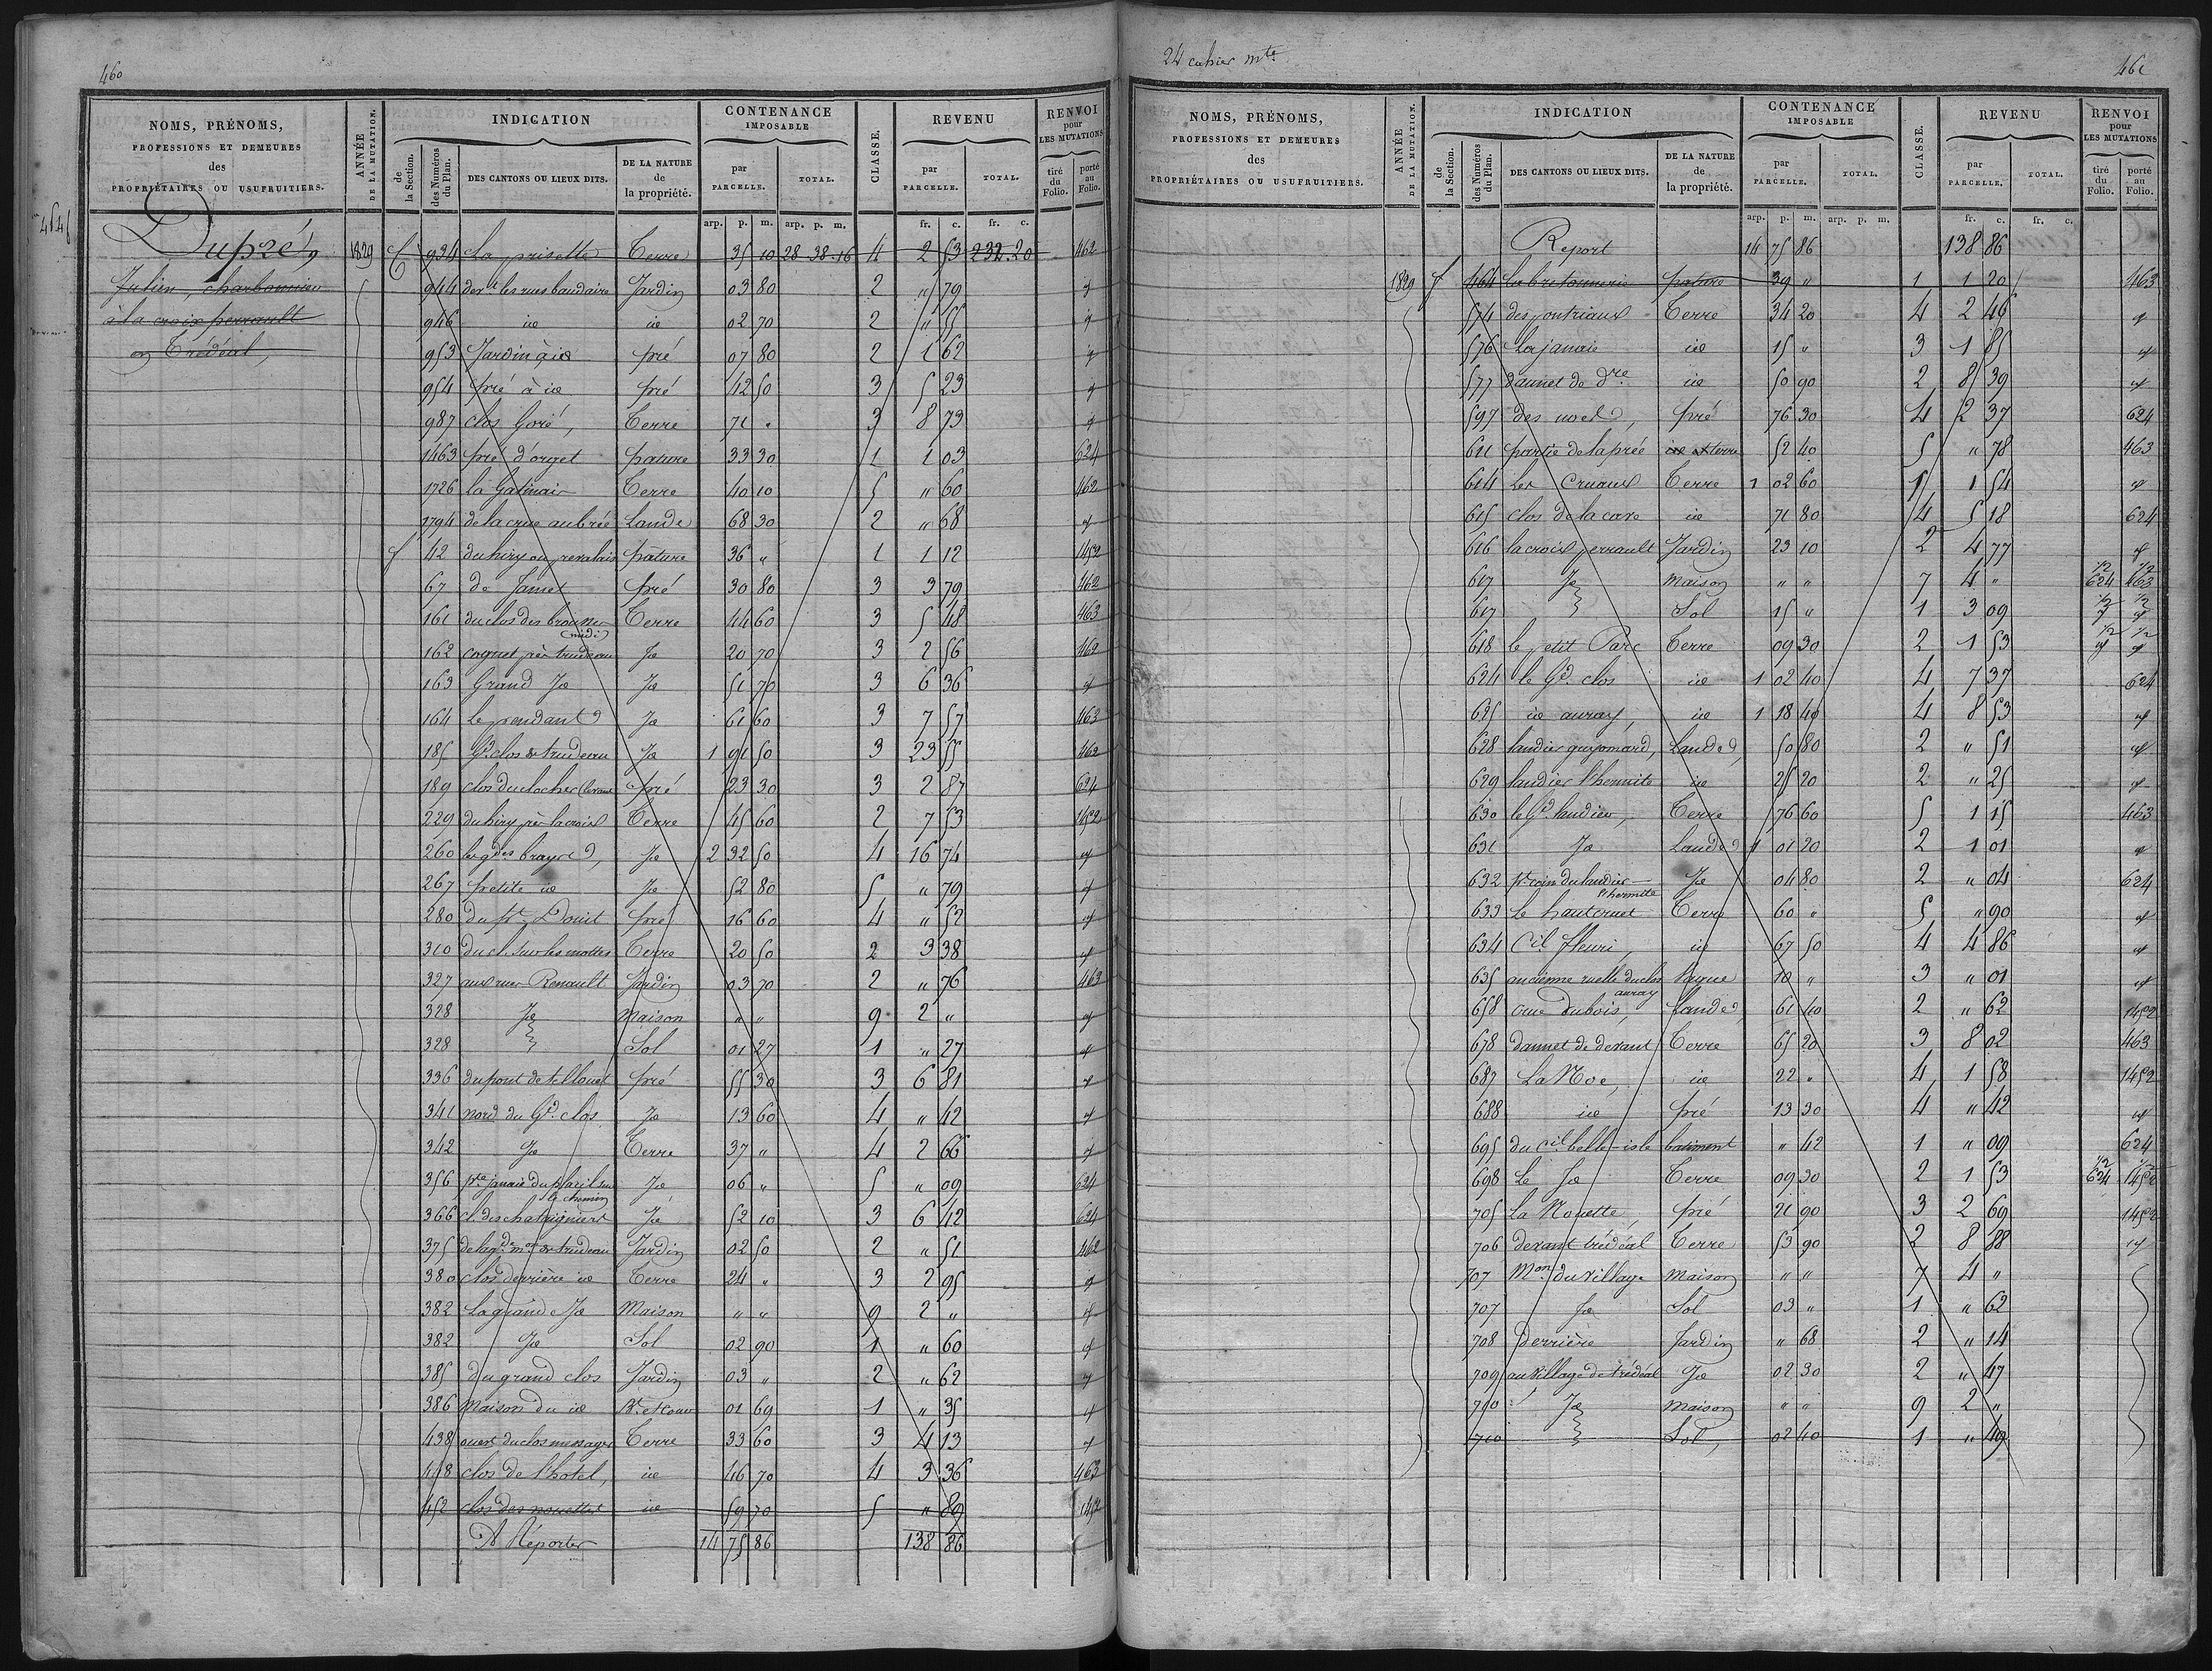 460
NOMS, PRÉNOMS, PROFESSIONS ET DEMEURES des PROPRIÉTAIRES OU USUFRUITIERS.
ANNÉE DE LA MUTATION.
INDICATION
de la Section. des Numéros du Plan. DES CANTONS OU LIEUX DITS. DE LA NATURE de la propriété.
CONTENANCE IMPOSABLE
par PARCELLE. TOTAL.
CLASSE.
REVENU
par PARCELLE. TOTAL.
RENVOI pour LES MUTATIONS
tiré du Folio. porté au Folio.
arp. p. m. arp. p. m. fr. c. fr. c.
Dupré,
Julien, charbonnier
à la croix perrault
en Trédéal,
1829 E 934 La prisette Terre 35 10 28 38 16 4 2 53 232 20 462
944 der les rues baudaire Jardin 03 80 2 " 79 id
946 id id 02 70 2 " 55 id
953 Jardin à id pré 07 80 2 1 62 id
954 pré à id pré 42 50 3 5 23 id
987 clos Goré, Terre 71 " 3 8 73 id
1463 pré d'orget pature 33 30 1 1 03 624
1726 la Gatinais Terre 40 10 5 " 60 462
1794 de la crue aubrée Lande 68 30 2 " 68 id
f 42 du hiry ou pature 36 " 1 1 12 1452
67 de Jamet pré 30 80 3 3 79 462
161 du clos des brousses Terre 44 60 3 5 48 463
(midi)
162 coquet près trudeau Id 20 70 3 2 56 462
163 Grand Id Id 51 70 3 6 36 id
164 Le pendant Id 61 60 3 7 57 463
185 Gd clos de trudeau Id 1 91 50 3 23 55 462
189 clos du clocher pré 23 30 3 2 87 624
229 du hiry près la croix Terre 45 60 2 7 53 1452
260 les gdes brayes, Id 2 32 50 4 16 74 id
267 petite id Id 52 80 5 " 79 id
280 du pt Douit pré 16 60 4 " 52 id
310 du cl. sur les mottes Terre 20 50 2 3 38 id
327 aux rues Renault Jardin 03 70 2 " 76 463
328 Id Maison " " 9 2 " id
328 Sol 01 27 1 " 27 id
336 du pont de pré 55 30 3 6 81 id
341 nord du Gd. clos Id 13 60 4 " 42 id
342 Id Terre 37 " 4 2 66 id
356 pte janaie du placil sur Id 06 " 5 " 09 624
le chemin
366 cl. des chataigniers Id 52 10 3 6 42 624
375 de la gde mon de trudeau Jardin 02 50 2 " 51 462
380 clos derrière id Terre 24 " 3 2 95 id
382 La grande Id Maison " " 9 2 " id
382 Id Sol 02 90 1 " 60 id
385 du grand clos Jardin 03 " 2 " 62 id
386 Maison du id Bt et cour 01 69 1 " 35 id
438 ouest du clos messager Terre 33 60 3 4 13 id
448 clos de l'hotel, id 46 70 4 3 36 463
452 clos des nouettes id 59 70 5 " 89 1452
A Réporter 14 75 86 138 86
24 cahier mte
461
NOMS, PRÉNOMS, PROFESSIONS ET DEMEURES des PROPRIÉTAIRES OU USUFRUITIERS.
ANNÉE DE LA MUTATION.
INDICATION
de la Section. des Numéros du Plan. DES CANTONS OU LIEUX DITS. DE LA NATURE de la propriété.
CONTENANCE IMPOSABLE
par PARCELLE. TOTAL.
CLASSE.
REVENU
par PARCELLE. TOTAL.
RENVOI pour LES MUTATIONS
tiré du Folio. porté au Folio.
arp. p. m. arp. p. m. fr. c. fr. c.
Report 14 75 86 138 86
1829 f 464 La bretonnerie pature 39 " 1 1 20 463
574 des pontriaux Terre 34 20 4 2 46 id
576 La janaie id 15 " 3 1 85 id
577 dannet de dre id 50 90 2 8 39 id
597 des noels, pré 76 30 4 2 37 624
611 partie de la prée id et terre 52 40 5 " 78 463
614 Les Cruaux Terre 1 02 60 5 1 54 id
615 clos de la cave id 71 80 4 5 18 624
616 la croix perrault Jardin 23 10 2 4 77 id
617 Id Maison " " 7 4 " 1/2 624 1/2 463
617 Sol 15 " 1 3 09 1/2 id 1/2 id
618 le petit Parc Terre 09 30 2 1 53 1/2 id 1/2 id
624 le Gd. clos id 1 02 40 4 7 37 624
625 id auray, id 1 18 40 4 8 53 id
628 landier guyomard, Landes, 50 80 2 " 51 id
629 landier l'hermite id 25 20 2 " 25 id
630 le Gd landier, Terre 76 60 5 1 15 463
631 Id Landes 1 01 20 2 1 01 id
632 pt coin du landier Id 04 80 2 " 04 624
l'hermite
633 Le haut cruet Terre 60 " 5 " 90 id
634 Cil fleuri, id 67 50 4 4 86 id
635 ancienne ruelle du clos Vague 10 " 3 " 01 id
auray
658 crue dubois, Landes, 61 40 2 " 62 1452
678 dannet de devant Terre 65 20 3 8 02 463
687 La Noe, id 22 " 4 1 58 1452
688 id pré 13 30 4 " 42 id
695 du cil belle-isle batiment " 42 1 " 09 624
698 Le Id Terre 09 30 2 1 53 1/2 624 1/2 1452
705 La Nouette, pré 21 90 3 2 69 1452
706 devant trédéal Terre 53 90 2 8 88 id
707 Mon du village Maison " " 7 4 "
707 Id Sol 03 " 1 " 62
708 Derrière Jardin " 68 2 " 14
709 au village de trédéal Id 02 30 2 " 47
710 Id Maison " " 9 2 "
710 Sol, 02 40 1 " 49